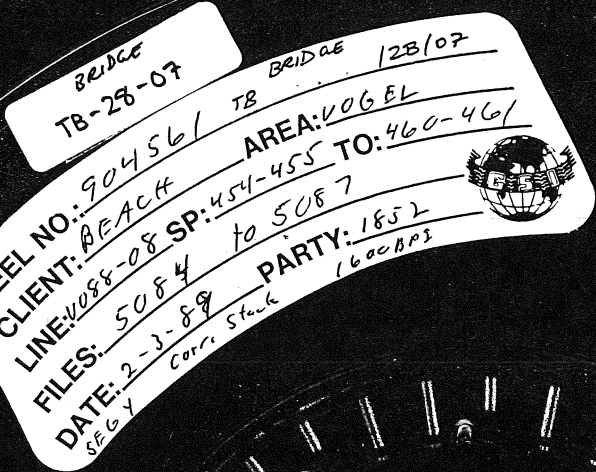 BRIDGE
TB-28-07
EEL NO.: 904561 TB BRIDGE 128/07
CLIENT: BEACH AREA: VOGEL
LINE: V088-08 SP: 454-455 TO: 460-461
FILES: 5084 to 5087
DATE: 2-3-89 PARTY: 1852
SEGY Corr. Stack 1600BPI
GSI